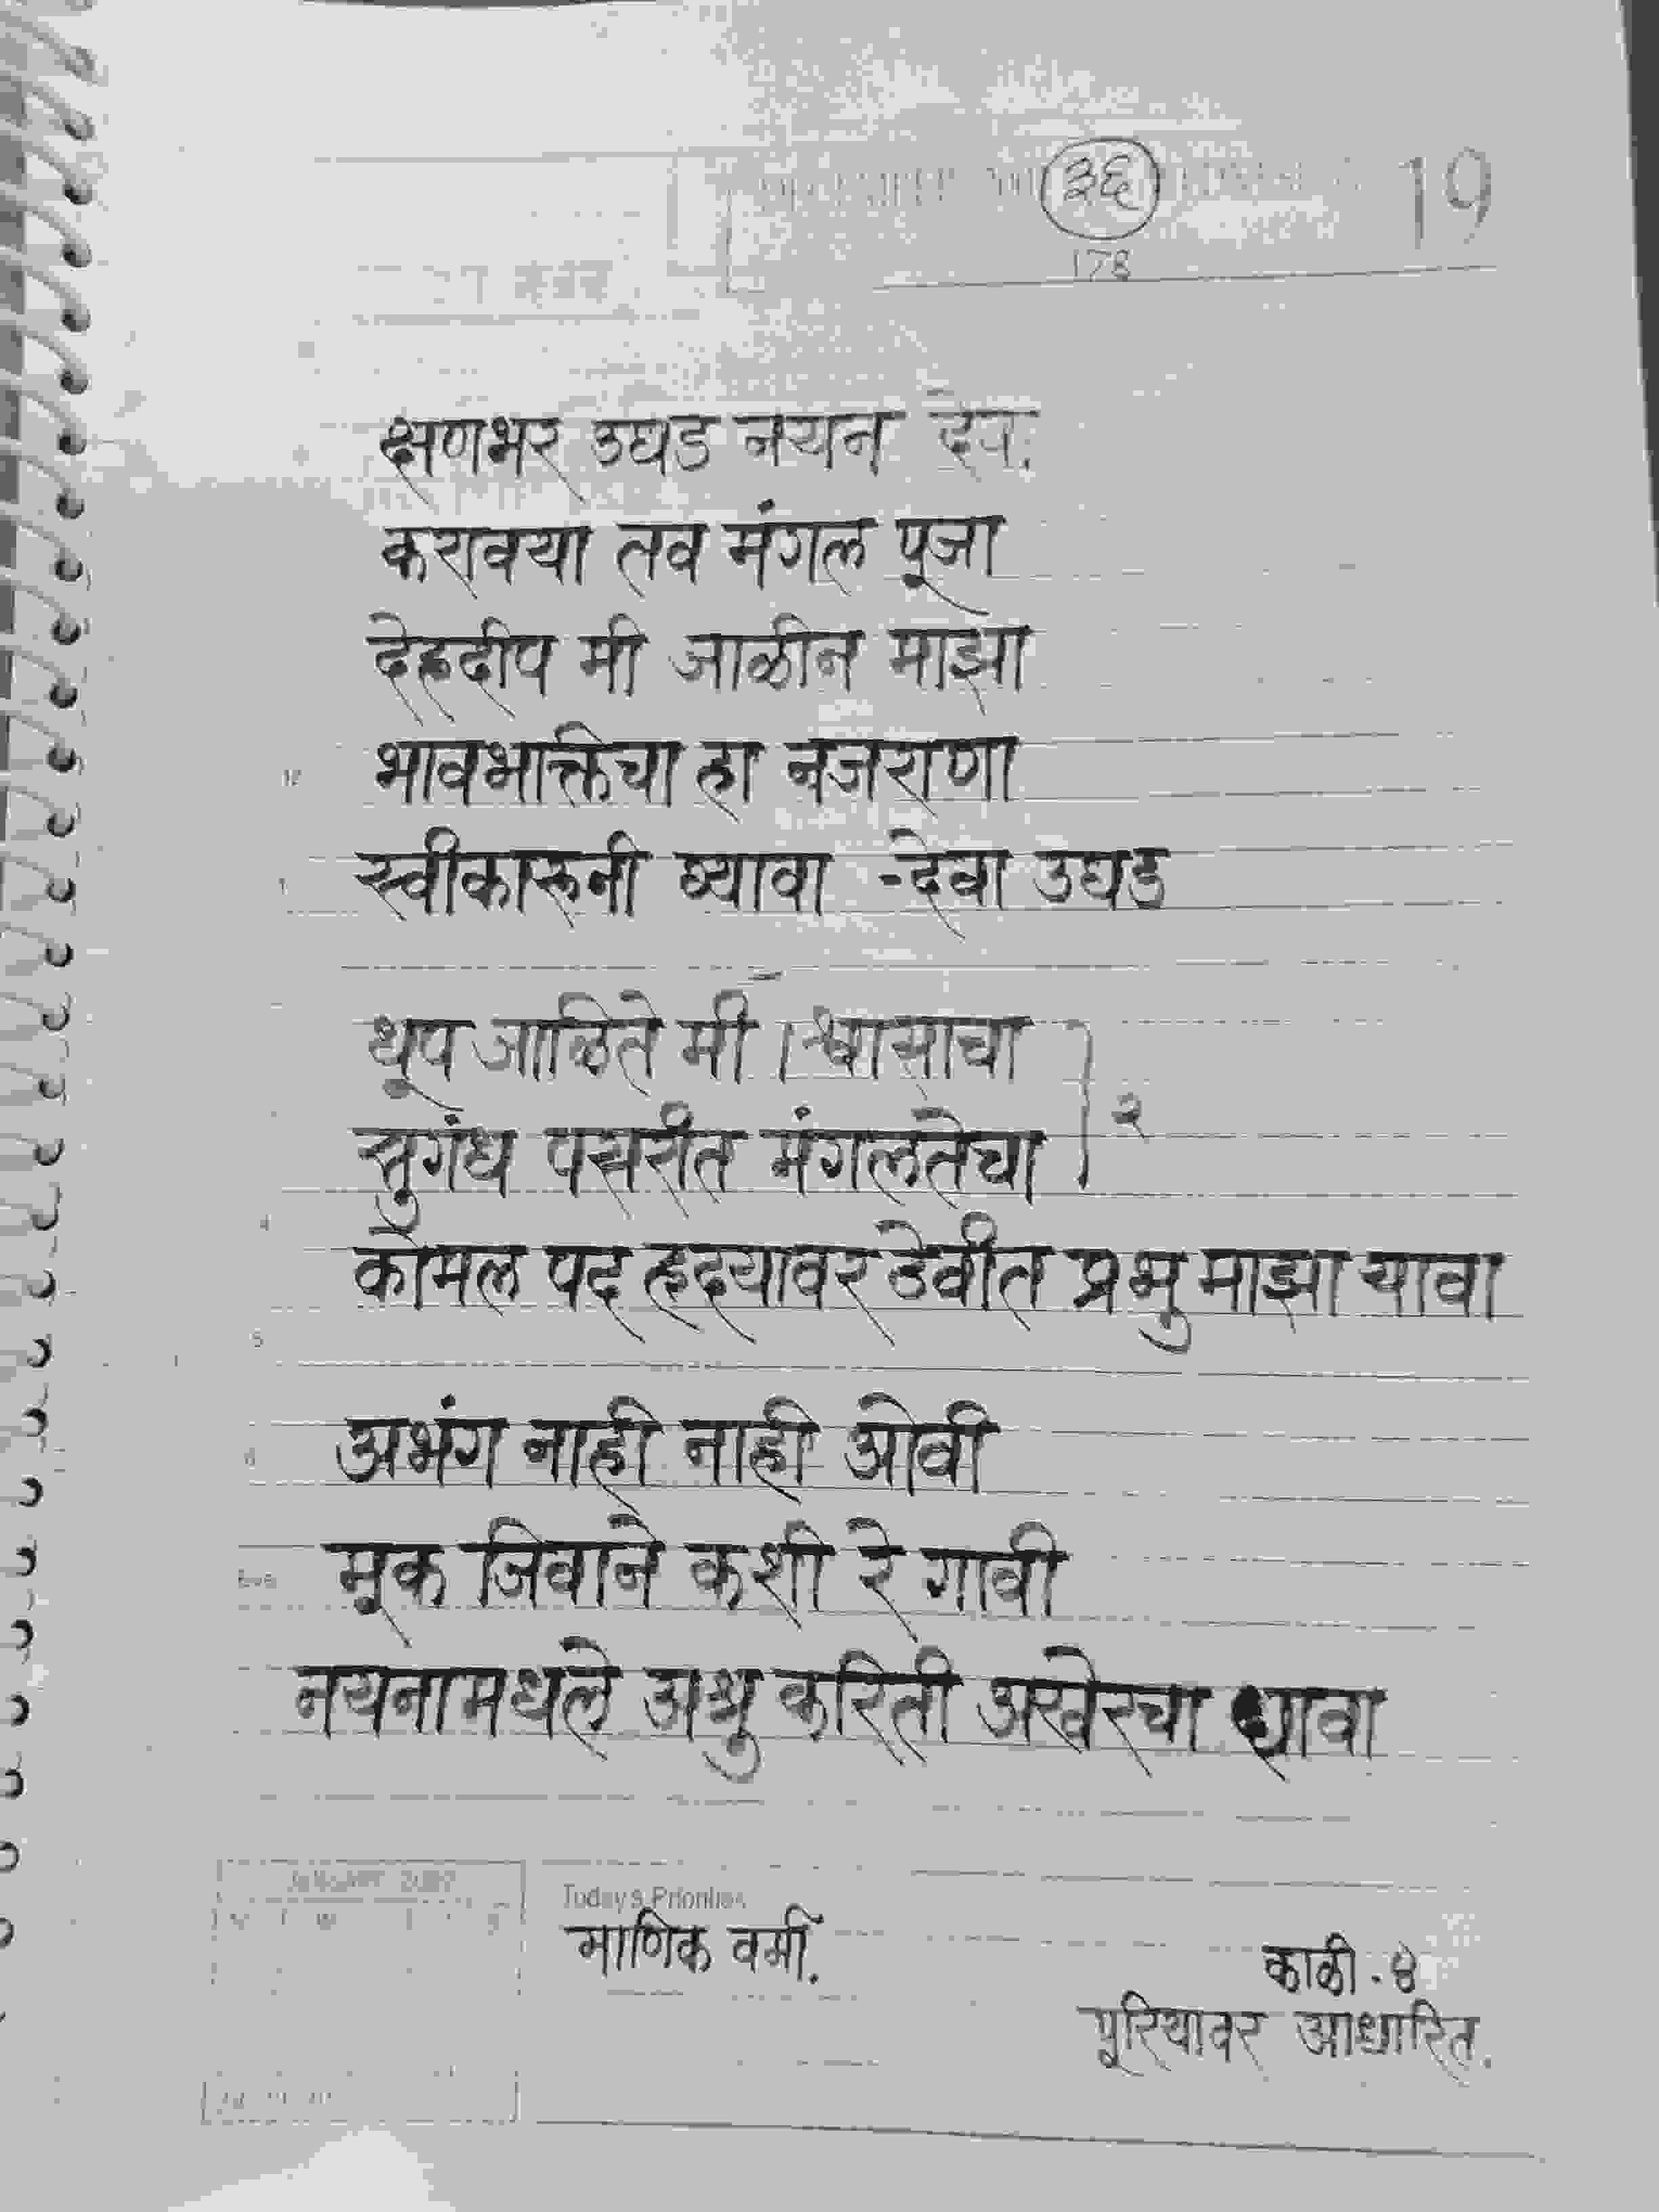 ३६
19
178
क्षणभर उघड नयन देवा
करावया तव मंगल पूजा
देहदीप मी जाळीन माझा
भावभक्तिचा हा नजराणा
स्वीकारूनी घ्यावा - देवा उघड
धूप जाळिते मी । श्वासाचा
सुगंध पसरीत मंगलतेचा } २
कोमल पद हृदयावर ठेवीत प्रभु माझा यावा
अभंग नाही नाही ओवी
मूक जिवाने कशी रे गावी
नयनामधले अश्रु करिती अखेरचा धावा
Today's Priorities
माणिक वर्मा.
काळी - ४
पूरियावर आधारित.